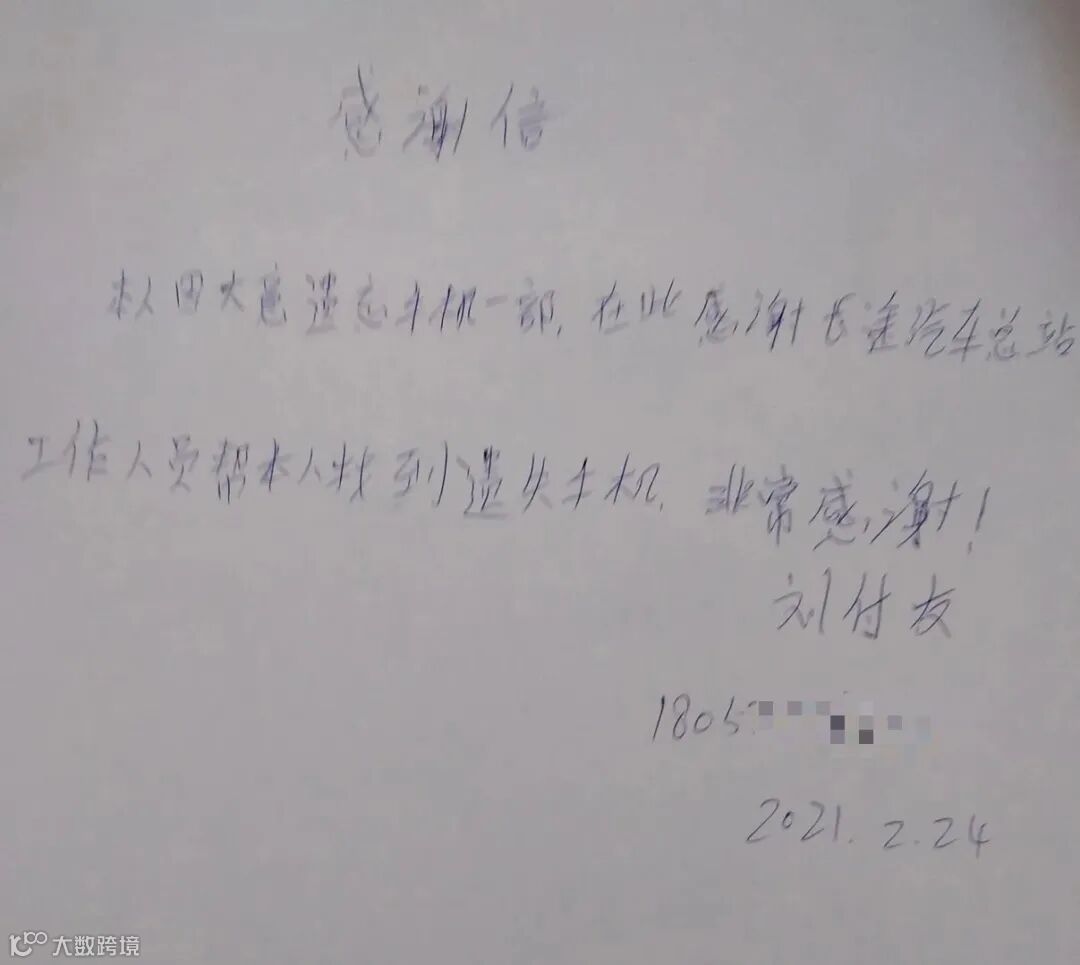 感谢信
本人因大意遗忘手机一部,在此感谢长途汽车总站
工作人员帮本人找到遗失手机,非常感谢!
刘付友
1805
2021.2.24
大数跨境